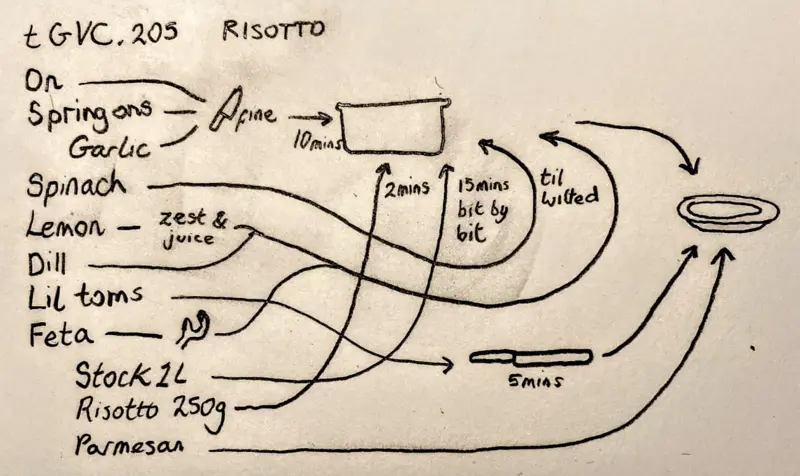 t GVC. 205 RISOTTO
On
Spring ons
fine
Garlic
10mins
Spinach
2mins
15mins
bit by
bit
til
wilted
Lemon - zest &
juice
Dill
Lil toms
Feta
Stock 1L
5mins
Risotto 250g
Parmesan